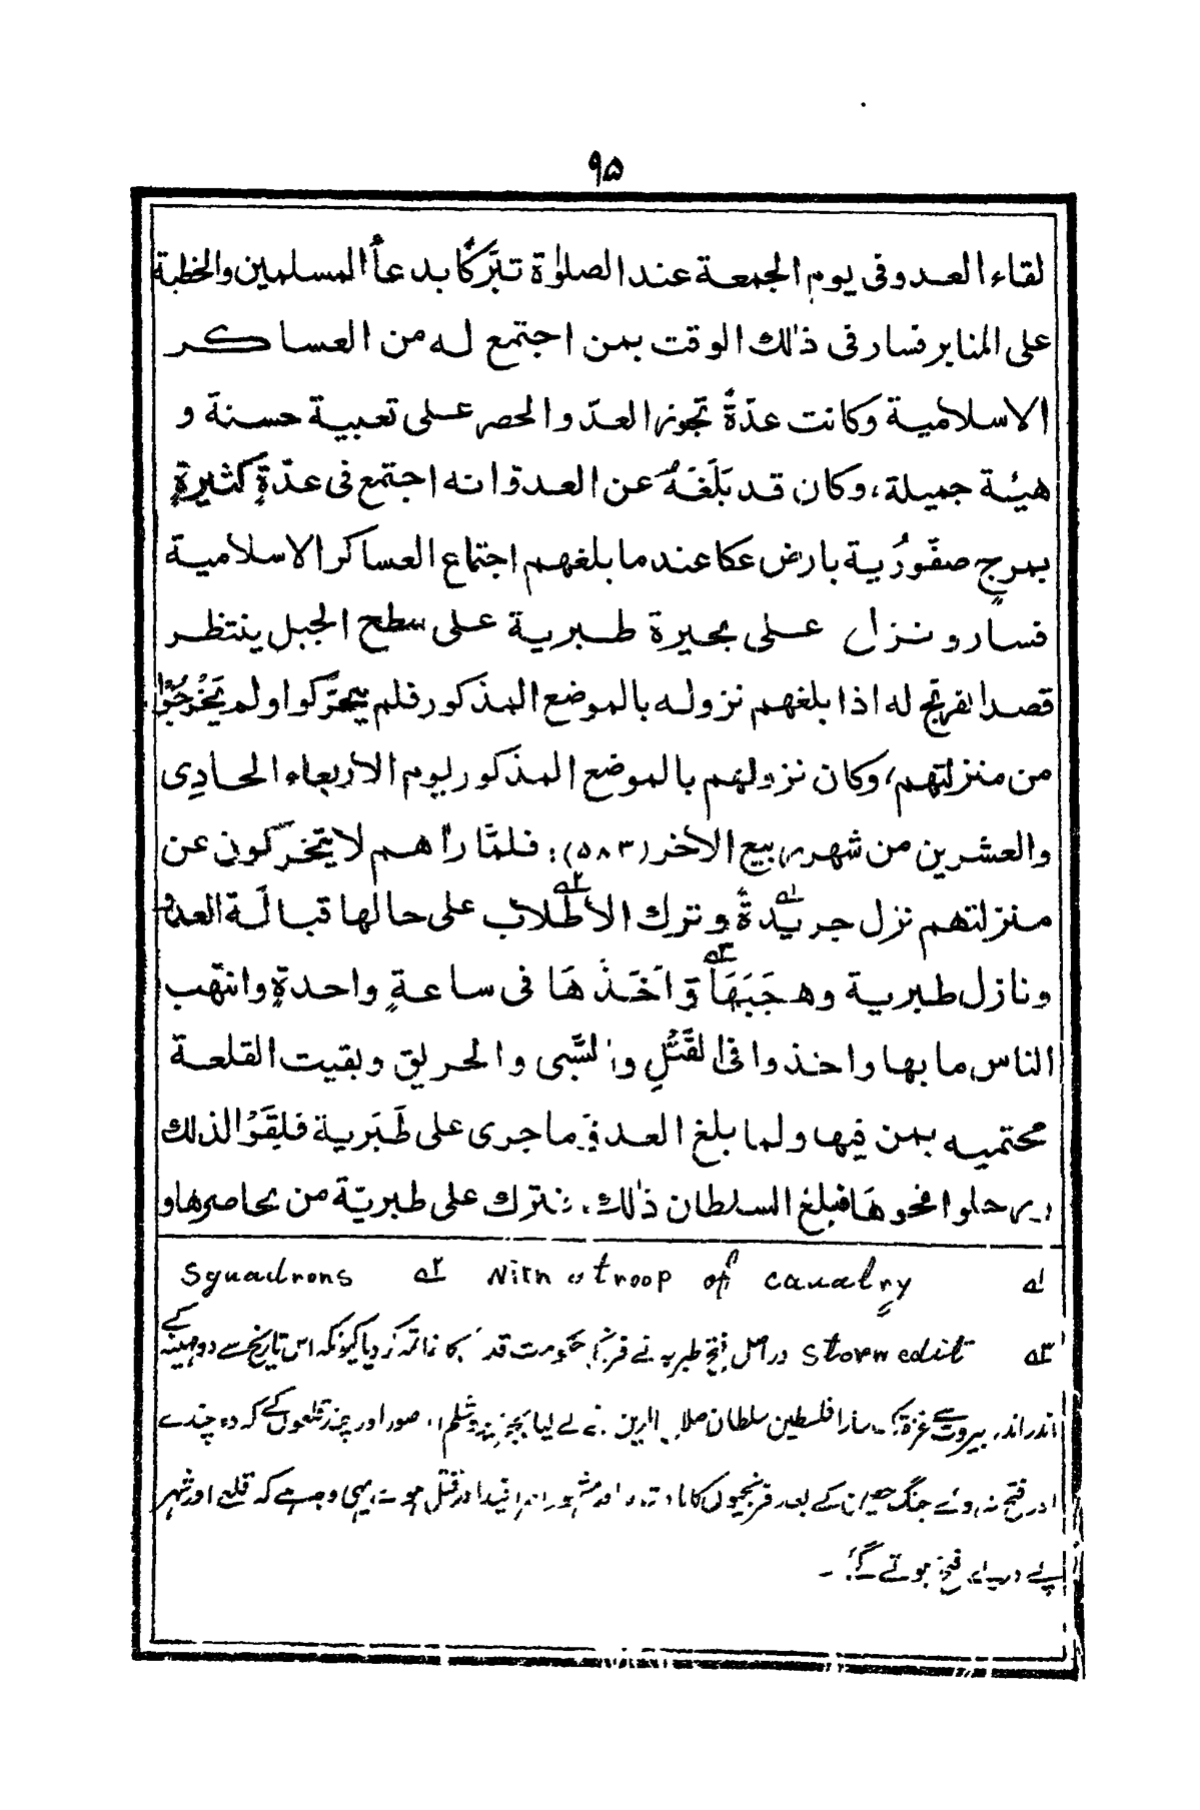 ۹۵
لقاء العدو فى يوم الجمعة عند الصلوٰة تبرّكًا بدعأ المسلمين والخطبة
على المنابر فسار فى ذٰلك الوقت بمن اجتمع له من العساكر
الاسلامية وكانت عدّةٌ تجوز العدّ والحصر على تعبية حسنة و
هيئة جميلة، وكان قد بَلَغَهُ عن العدو انه اجتمع فى عدّةٍ كثيرةٍ
بمرجٍ صفّورُية بارض عكا عند ما بلغهم اجتماع العساكر الاسلامية
فسار و نزل على بحيرة طبرية على سطح الجبل ينتظر
قصد الفرنج له اذا بلغهم نزوله بالموضع المذكور فلم يتحرّكوا ولم يَخْرُجُوْا
من منزلتهم، وكان نزولهم بالموضع المذكور ليوم الاربعاء الحادِى
والعشرين من شهر ربيع الآخر (۵۸۳)؛ فلمّا رأهم لا يتحرّكون عن
منزلتهم نزل جريدةً ؎۱ وترك الأطلاب ؎۲ على حالها قبالَة العدو
ونازل طبرية وهجَبَهَا ؎۳ وَّاَخَذَهَا فى ساعةٍ واحدةٍ وانتهب
الناس ما بها واخذوا فى القَتْلِ والسَّبى والحريق وبقيت القلعة
محتميه بمن فيها ولما بلغ العدو ما جرى على طَبَرية فلقَوْا لذلك
ورحلوا نحوهَا فبلغ السلطان ذٰلك، فترك على طبريّة من يحاصرها و
؎۱ With a troop of cavalry ؎۲ Squadrons
؎۳ Stormed it دراصل فتح طبریہ نے حکومت قدس کا خاتمہ کر دیا کیونکہ اس تاریخ سے دو مہینے کے
اندر اندر بیروت سے غزہ تک سارا فلسطین سلطان صلاح الدین نے لے لیا بجز یروشلم، صور اور چند قلعوں کے کہ وہ چندے
اور فتح نہ ہوئے جنگ حطین کے بعد فرنجیوں کا قید اور قتل یہی وجہ ہے کہ قلعے اور شہر
پے در پے فتح ہوتے گئے۔